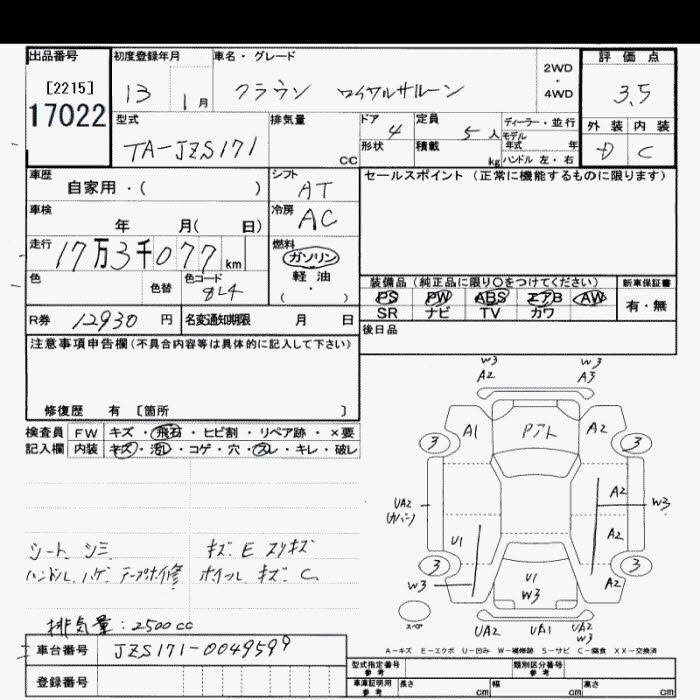 出品番号 初度登録年月 車名・グレード 2WD・4WD 評価点
[2215] 13 1月 クラウン ロイヤルサルーン 3.5
17022 型式 排気量 ドア 4 定員 5人 ディーラー・並行 外装 内装
TA-JZS171 CC 形状 積載 kg モデル年式 年 D C
ハンドル 左・右
車歴 自家用・( ) シフト AT セールスポイント(正常に機能するものに限ります)
車検 年 月( 日) 冷房 AC
走行 17万3千077km 燃料 ガソリン・軽油・( )
色 色替 色コード 8L4 装備品(純正品に限り○をつけてください) 新車保証書
PS PW ABS エアB AW 有・無
R券 12930円 名変通知期限 月 日 SR ナビ TV カワ
注意事項申告欄(不具合内容等は具体的に記入して下さい) 後日品
修復歴 有 [箇所 ]
検査員 FW キズ・飛石・ヒビ割・リペア跡・×要
記入欄 内装 キズ・汚れ・コゲ・穴・スレ・キレ・破レ
W3 W3
A2 A3
3 A1 Pアト A2 3
UA2 A2 W3
U1 A2
3 3
W3 U1 A2
W3
スペア UA2 UA1 UA2
W3
シート シミ キズ E スリキズ
ハンドル ハゲ テープホ修 ホイール キズ C
排気量:2500cc
車台番号 JZS171-0049599
A-キズ E-エクボ U-凹み W-補修跡 S-サビ C-腐食 XX-交換済
登録番号 型式指定番号 参考 類別区分番号 参考
車庫証明用 参考 長さ cm 幅 cm 高さ cm